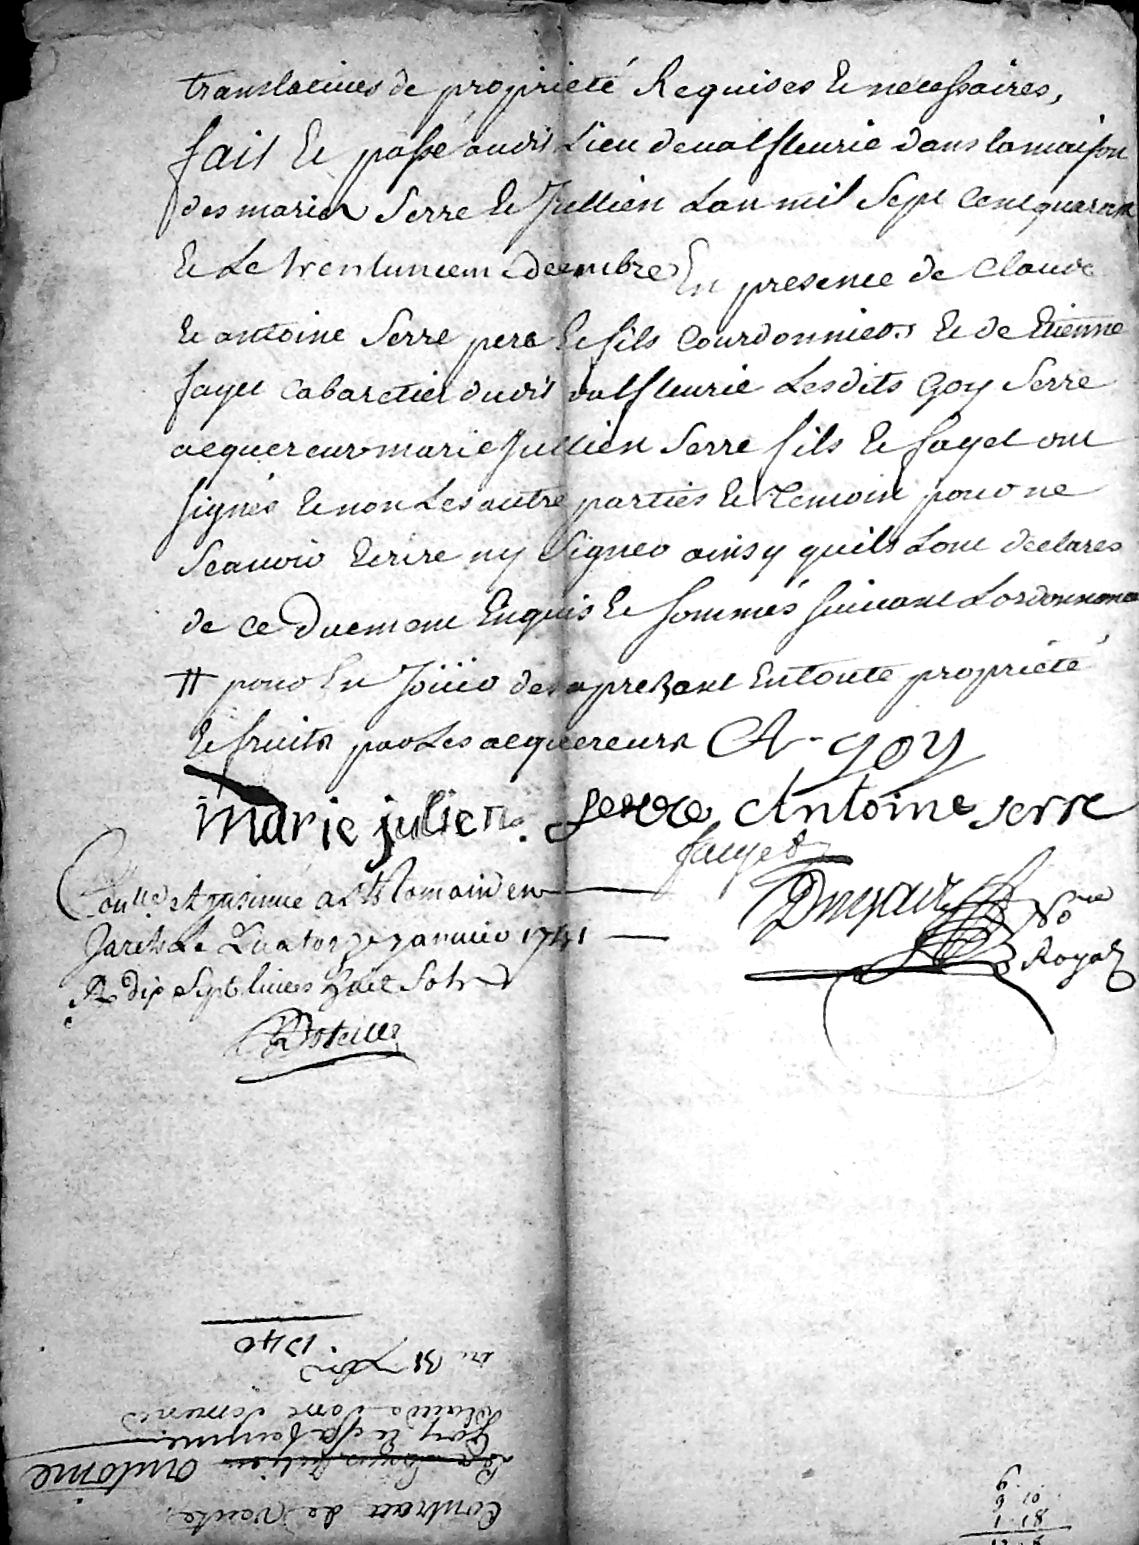 translatives de propriété Requises Et necessaires,
fait Et passé audit Lieu de valfleurie dans la maison
des mariés Serre Et Jullien Lan mil Sept Cent quarante
Et Le trentunieme decembre En presence de Claude
Et antoine Serre pere Et fils Courdonniers Et de Etienne
fayet Cabaretier dudit valfleurie Lesdits Goy Serre
acquereur marie Jullien Serre fils Et fayet ont
signés Et non Les autre parties Et Temoin pour ne
Scauoir Ecrire ny Signer ainsy quils Lont declares
de ce Duement Enquis Et sommés suiuant Lordonnance
# pour En Joüir des a prezant En toute propriété
Et fruits par Les acquereurs A. goy
marie julien. serre Antoine serre
fayet
Nore
Royal
Conllé Et Insinué a St Romain en
Jarets Le Quatorze januier 1741
R dix Sept liures huit Sols
1740
au 31 Xbre
Goy Et sa femme
antoine
Contrat de vente
6
9 10
1 18